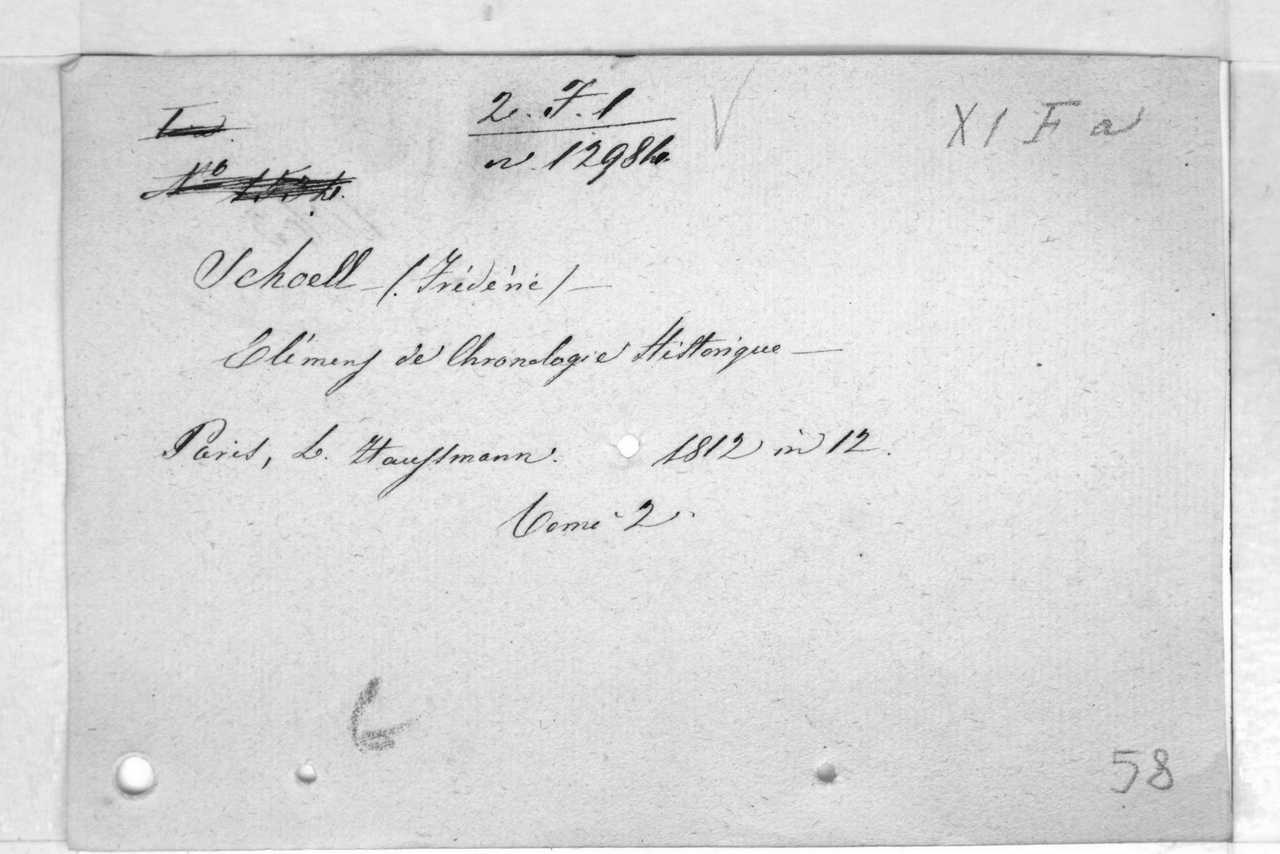 2. F. 1
XI F a
n. 1298b.
Nº
Schoell - (Frédéric) -
Elémens de Chronologie Historique -
Paris, L. Haussmann. 1812 in 12.
tome 2.
6
58